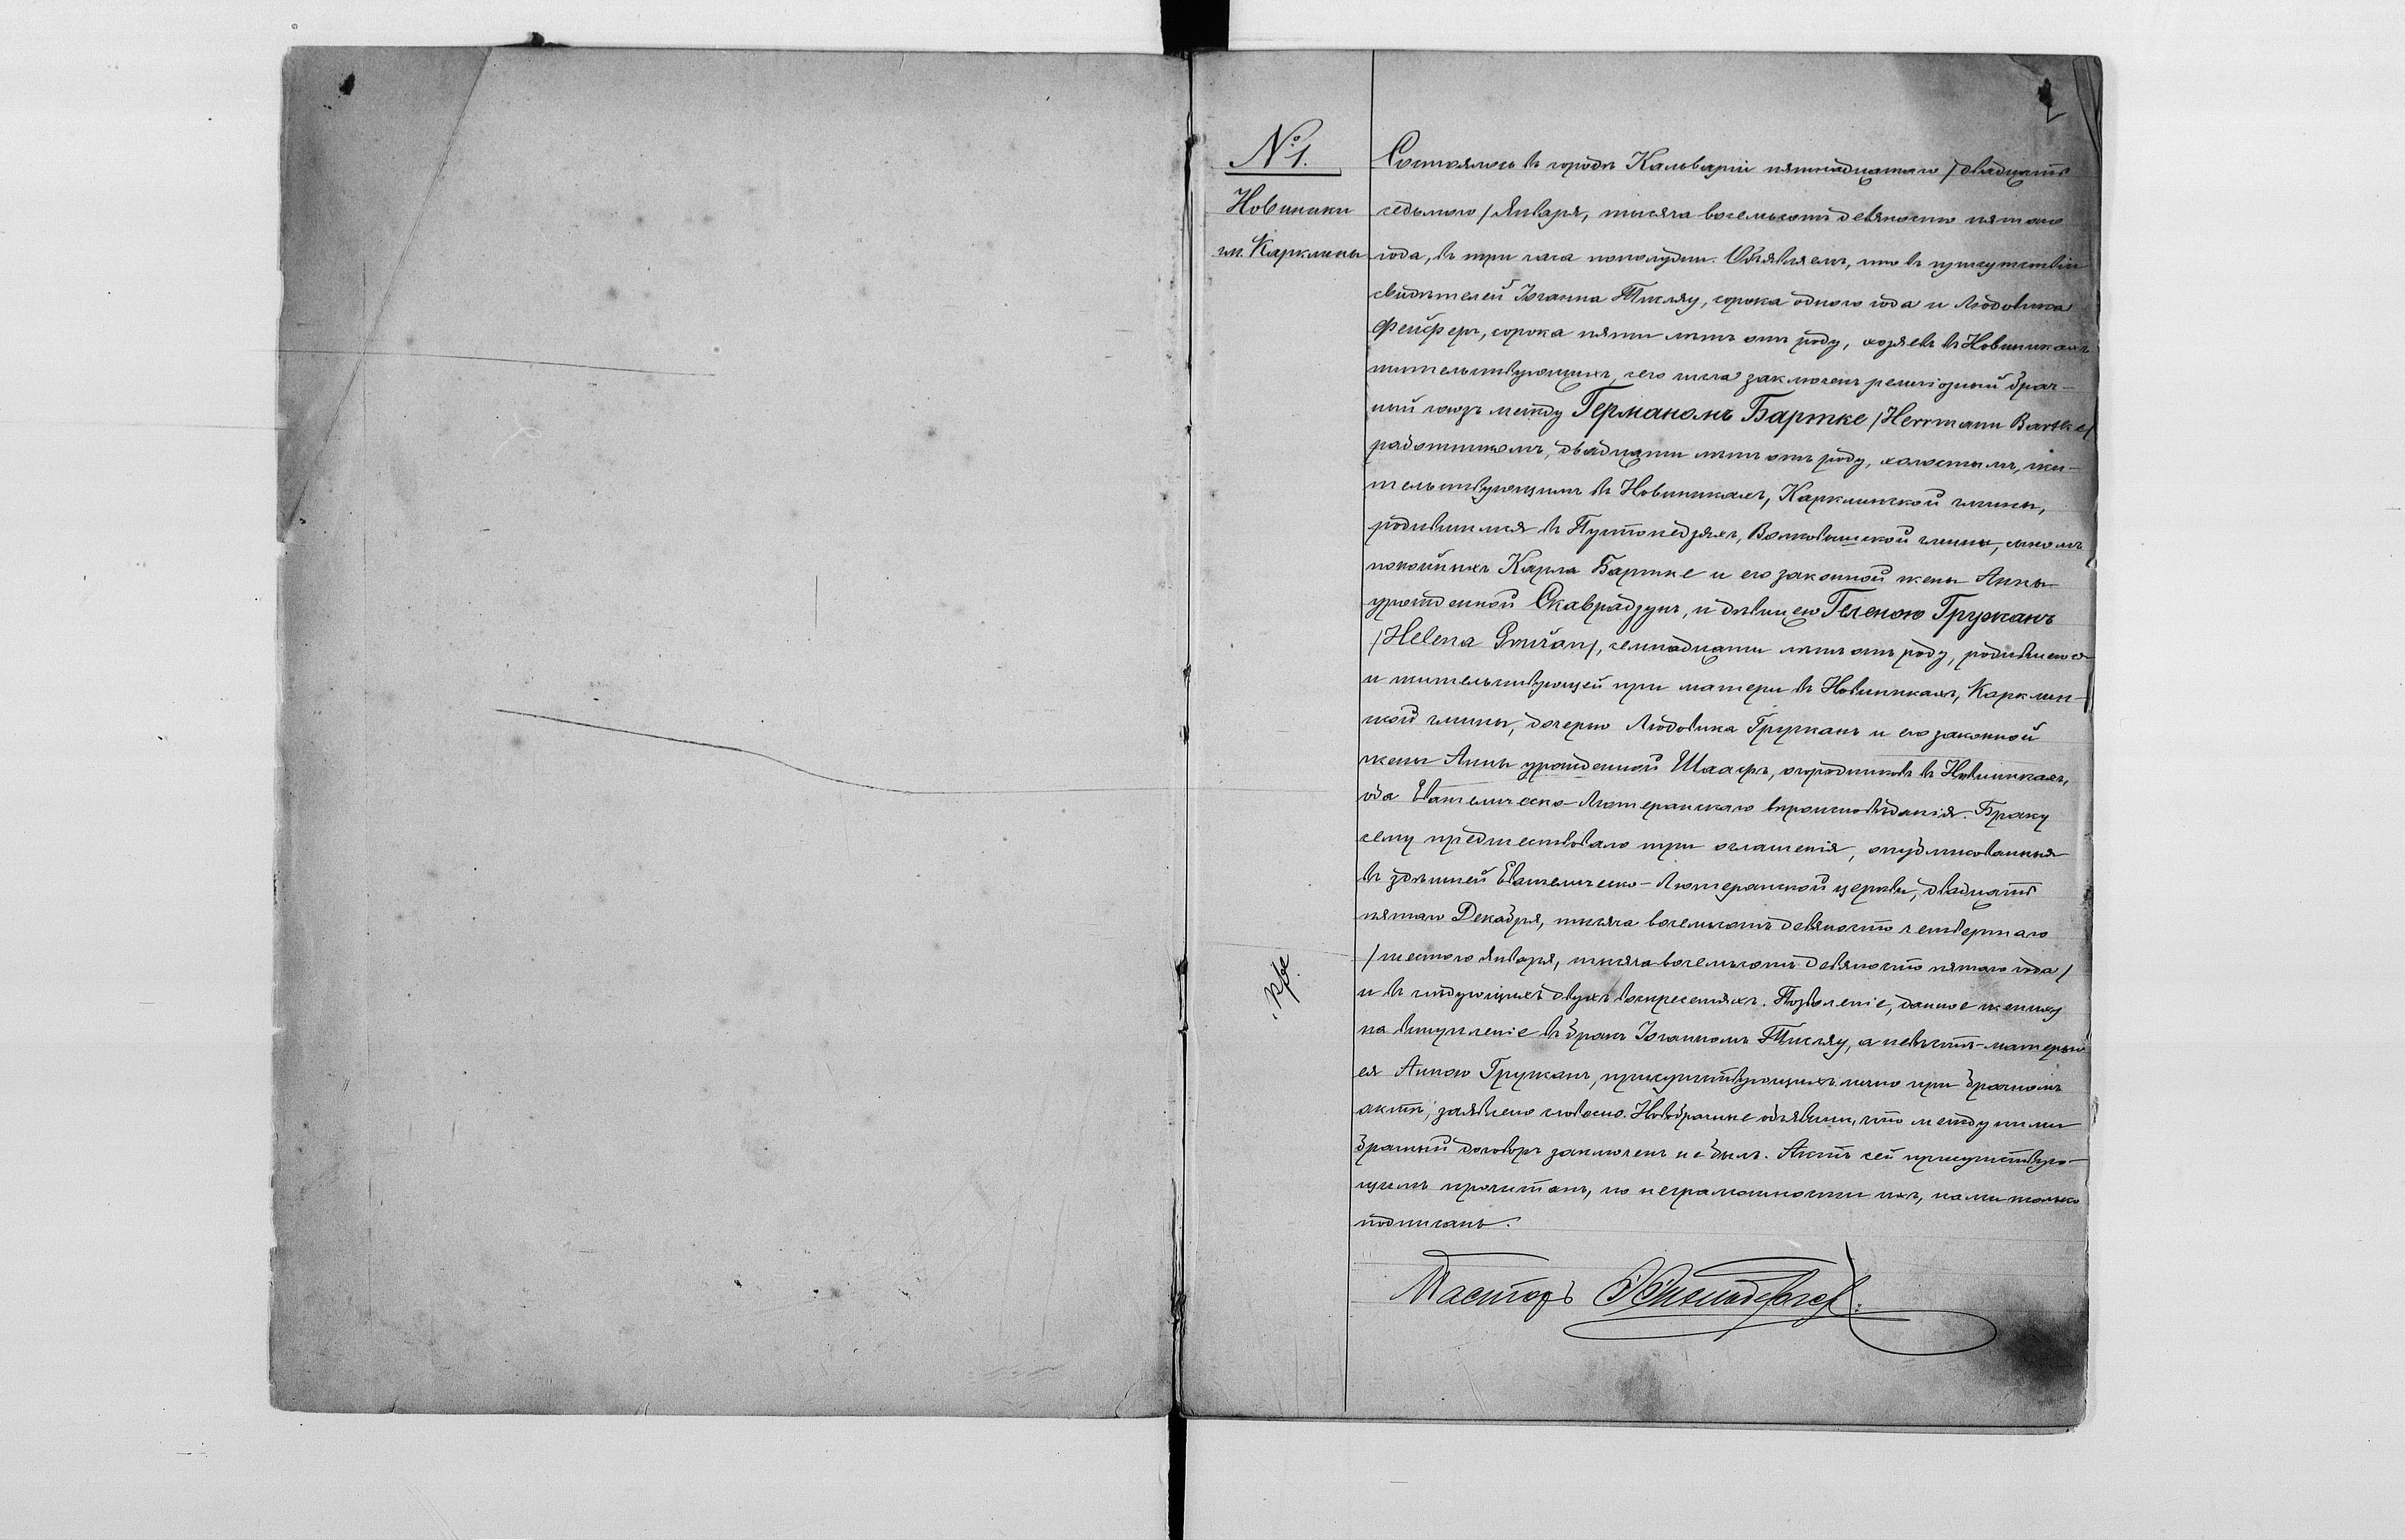 № 1.
Новиники
гм. Карклины
Состоялось въ городѣ Кальваріи пятнадцатаго /двадцать
седьмого/ Января, тысяча восемьсотъ девяносто пятаго
года, въ три часа пополудни. Объявляемъ, что въ присутствіи
свидѣтелей Іоганна, сорока одного года и Людовика
Фейферъ, сорока пяти лѣтъ отъ роду, хозяевъ въ Новиникахъ
жительствующихъ, сего числа заключенъ религіозный брач-
ный союзъ между Германомъ Бартке /Herrmann Bartke/
работникомъ, двадцати лѣтъ отъ роду, холостымъ, жи-
тельствующимъ въ Новиникахъ, Карклинской гмины,
родившимся въ Пустопедзяхъ, Волковышской гмины, сыномъ
покойныхъ Карла Бартке и его законной жены Анны
урожденной Скаврадзунъ, и дѣвицею Геленою Гружанъ
/Helena Gružan/, семнадцати лѣтъ отъ роду, родившеюся
и жительствующей при матери въ Новиникахъ, Карклин-
ской гмины, дочерью Людовика Гружанъ и его законной
жены Анны урожденной Шааръ, огородниковъ въ Новиникахъ,
оба Евангелическо-Лютеранскаго вѣроисповѣданія. Браку
сему предшествовало три оглашенія, опубликованныя
въ здѣшней Евангелическо-Лютеранской церкви, двадцать
пятаго Декабря, тысяча восемьсотъ девяносто четвертаго
/шестого Января, тысяча восемьсотъ девяносто пятаго года/
и въ слѣдующихъ двухъ воскресеніяхъ. Позволеніе, данное жениху
на вступленіе въ бракъ Іоганномъ, а невѣстѣ-матерью
ея Анною Гружанъ, присутствующихъ лично при брачномъ
актѣ, заявлено словесно. Новобрачные объявили, что между ними
брачный договоръ заключенъ не былъ. Актъ сей присутствую-
щимъ прочитанъ, по неграмотности ихъ, нами только
подписанъ.
Пасторъ